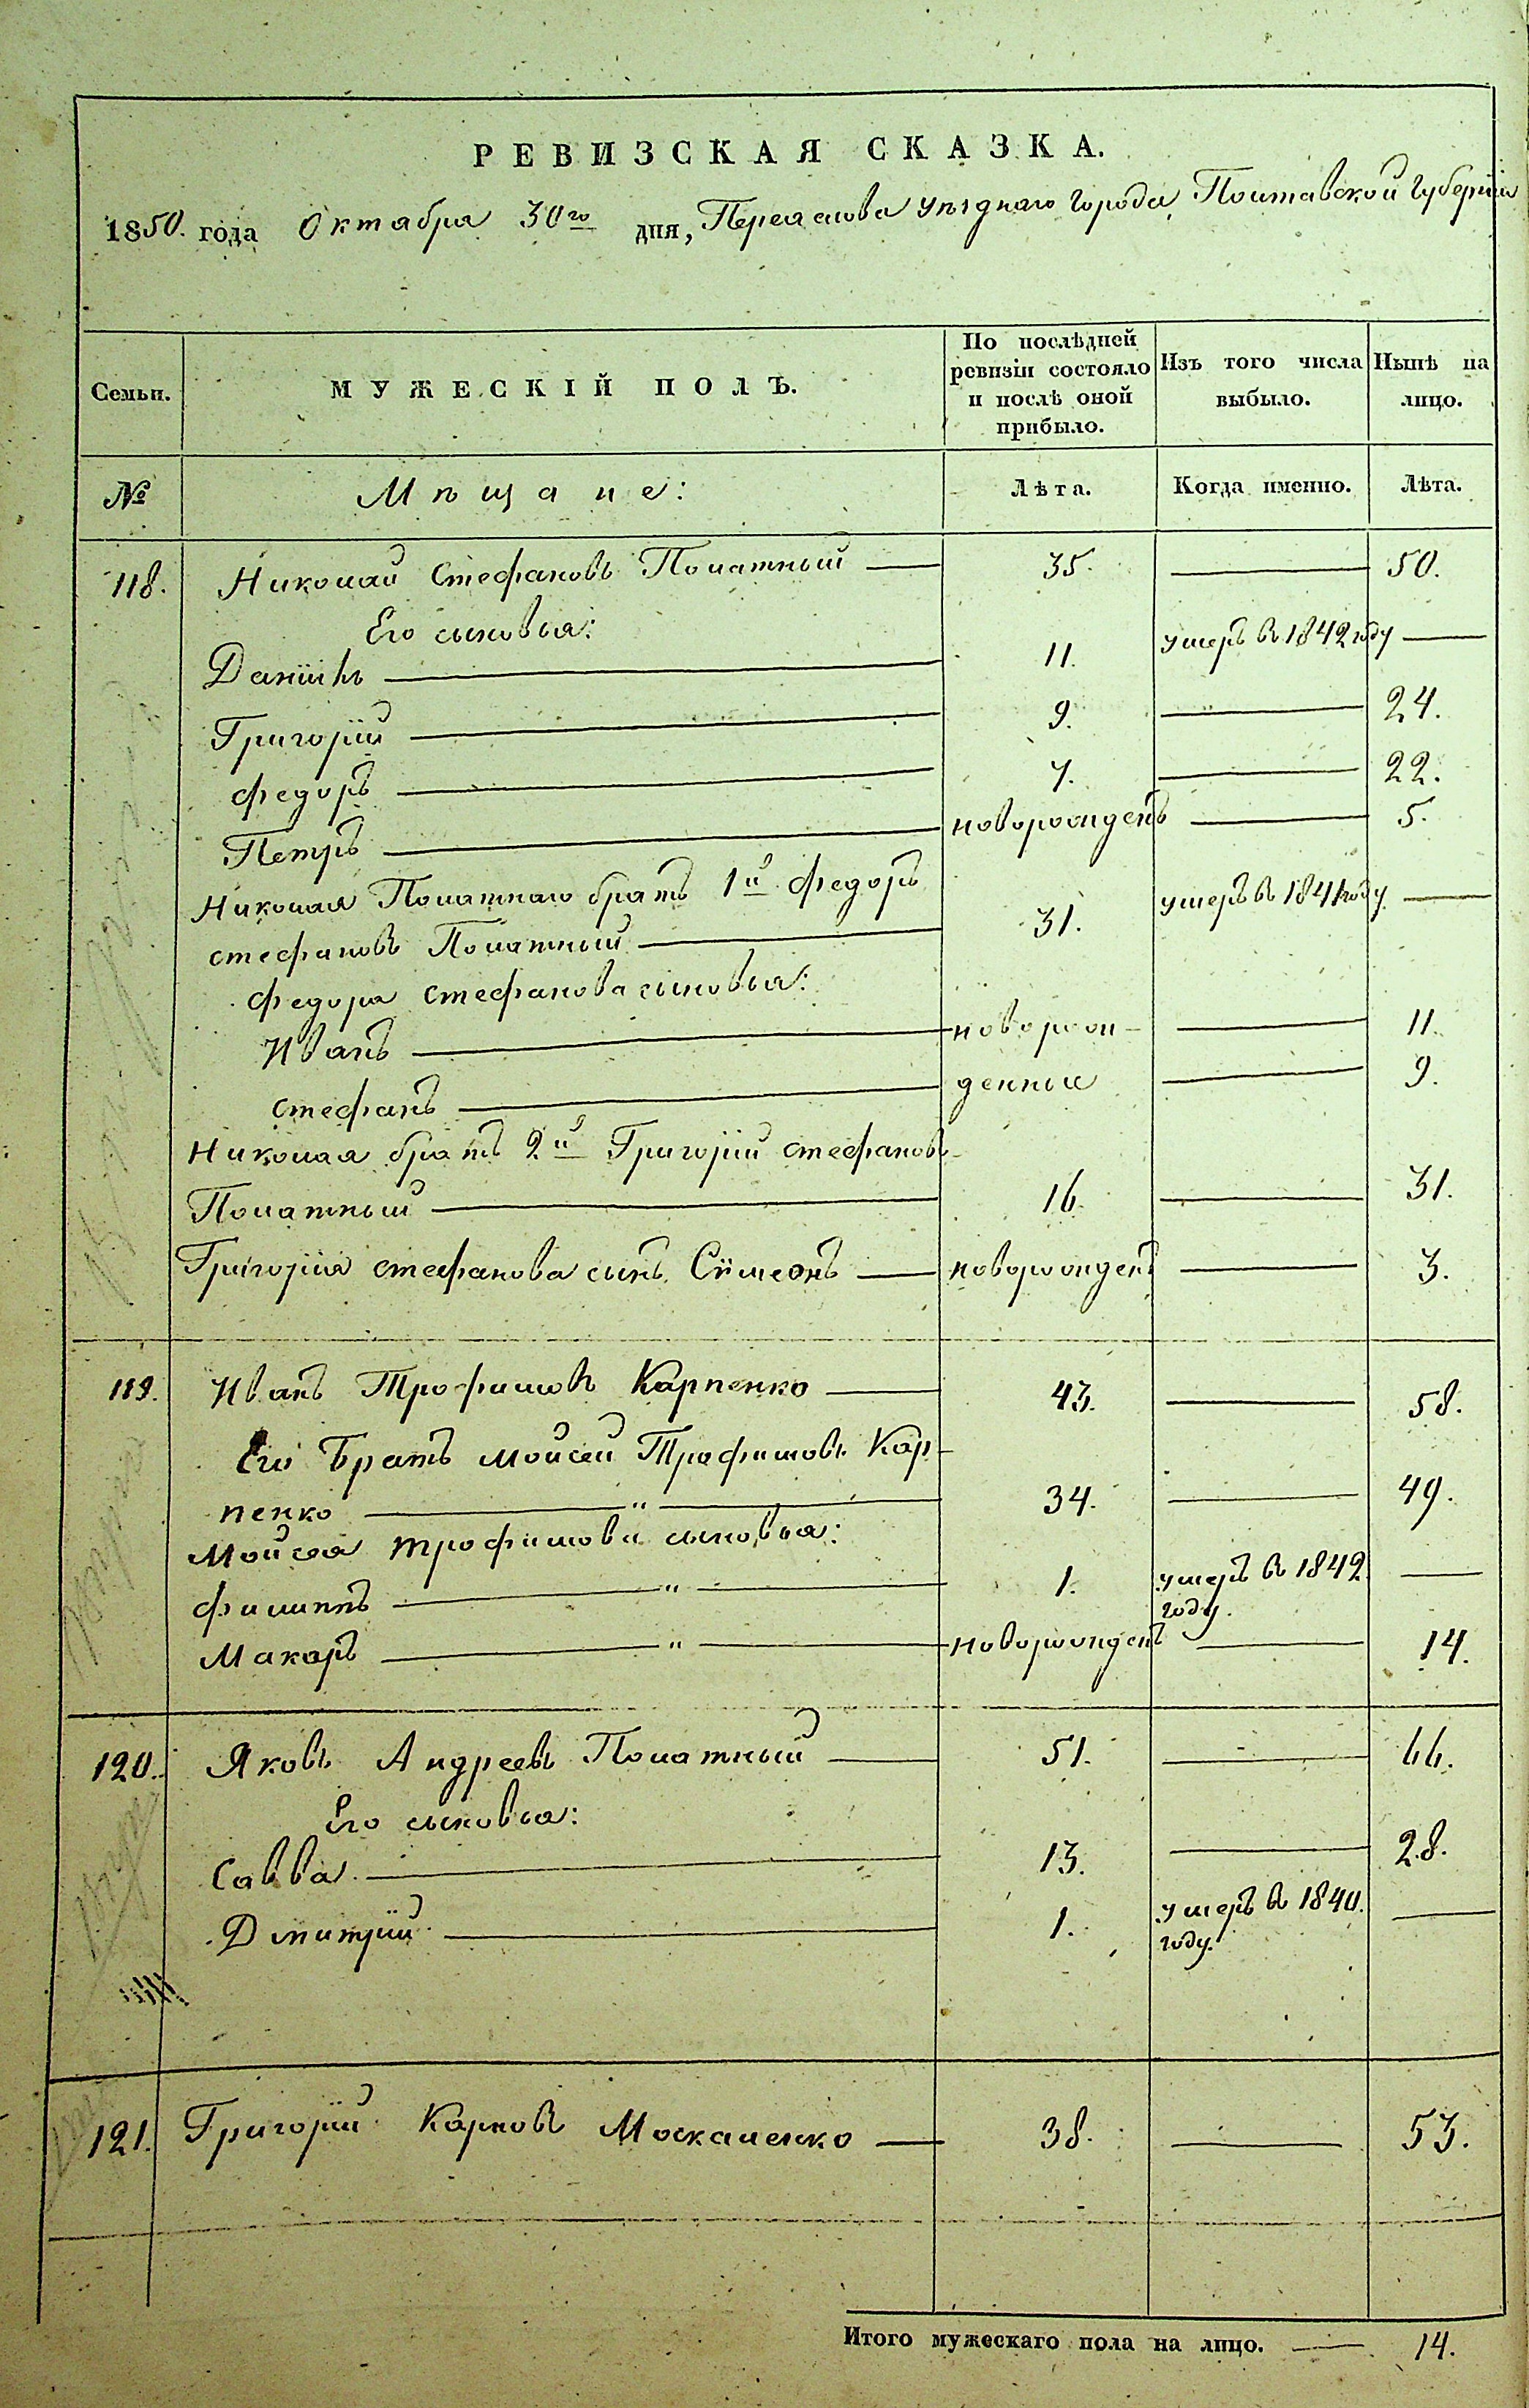 РЕВИЗСКАЯ СКАЗКА.
1850. года Октабра 30го дня, Переяслова Уѣзднаго Города, Полтавской Губерніи
Семьи. МУЖЕСКІЙ ПОЛЪ. По послѣдней ревизіи состояло и послѣ оной прибыло. Изъ того числа выбыло. Нынѣ на лицо.
№ Мѣщане: Лѣта. Когда именно. Лѣта.
118. Николай Стефановъ Полатный — 35. — 50.
Его сыновья:
Даніилъ — 11. умеръ въ 1842 году —
Григорій — 9. — 24.
Федоръ — 7. — 22.
Петръ — новорожденъ — 5.
Николая Полатнаго братъ 1й Федоръ
Стефановъ Полатный — 31. умеръ въ 1841 году —
Федора Стефанова сыновья:
Иванъ — новорож- — 11.
Стефанъ — денные — 9.
Николая братъ 2й Григорій Стефановъ
Полатный — 16. — 31.
Григорія Стефанова сынъ Сѵмеонъ — новорожденъ — 3.
119. Иванъ Трофимовъ Карпенко — 43. — 58.
Его Братъ Мойсей Трофимовъ Кар-
пенко — " — 34. — 49.
Мойсея Трофимова сыновья:
Филиппъ — " — 1. умеръ въ 1842 году. —
Макаръ — " — новорожденъ — 14.
120. Яковъ Андреевъ Полатный — 51. — 66.
Его сыновья:
Савва — 13. — 28.
Дмитрій — 1. умеръ въ 1840. году. —
121. Григорій Карповъ Москаленко — 38. — 53.
Итого мужескаго пола на лицо. — 14.